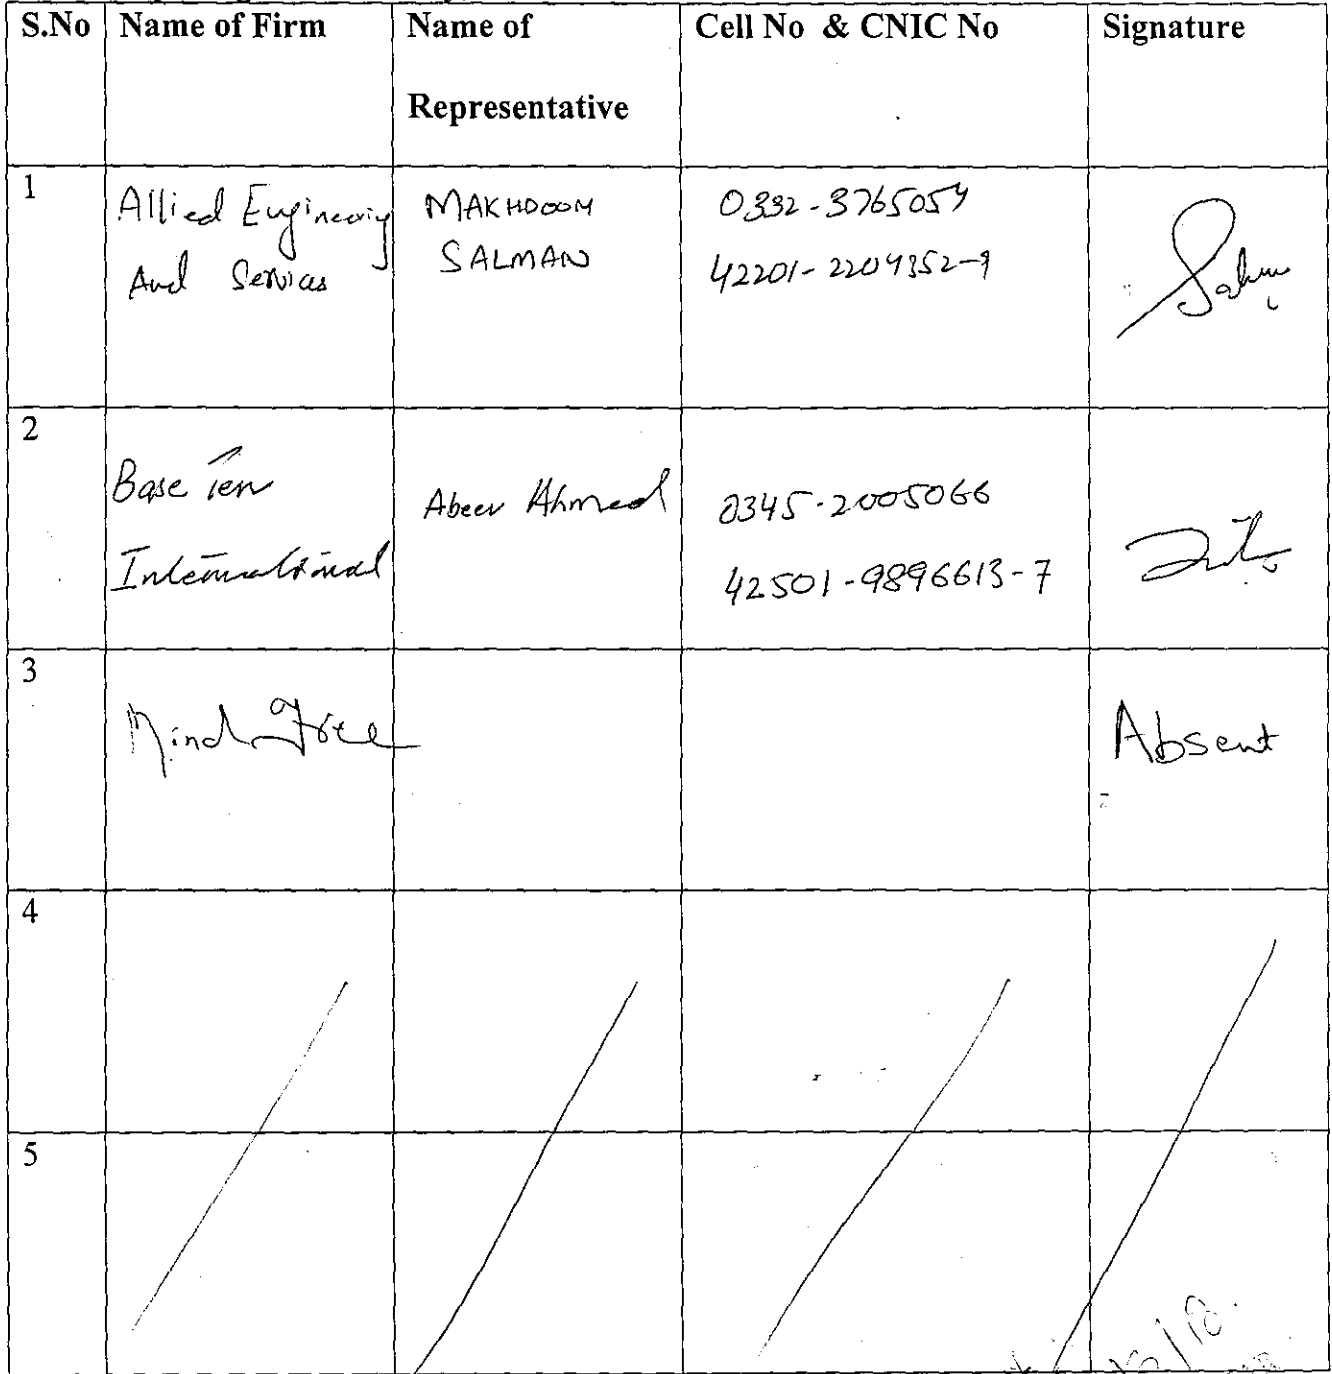 S.No Name of Firm Name of Representative Cell No & CNIC No Signature
1 Allied Engineering And Services MAKHDOOM SALMAN 0332-3765054 42201-2204352-9
2 Base Ten International Abeer Ahmed 0345-2005066 42501-9896613-7
3 Mind Tree Absent
4
5